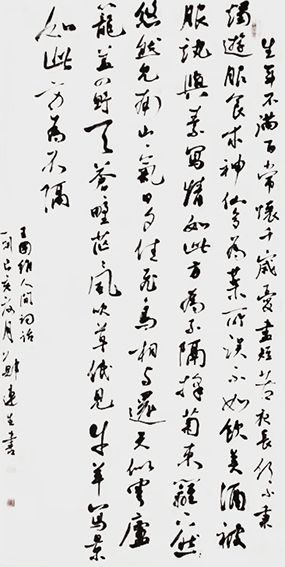 生年不滿百常懷千歲憂晝短苦夜長何不秉
燭遊服食求神仙多為藥所誤不如飲美酒被
服紈與素寫情如此方為不隔採菊東籬下
悠然見南山山氣日夕佳飛鳥相與還天似穹廬
籠蓋四野天蒼蒼野茫茫風吹草低見牛羊寫景
如此方為不隔
王國維人間詞話
一則己亥夏月連生書